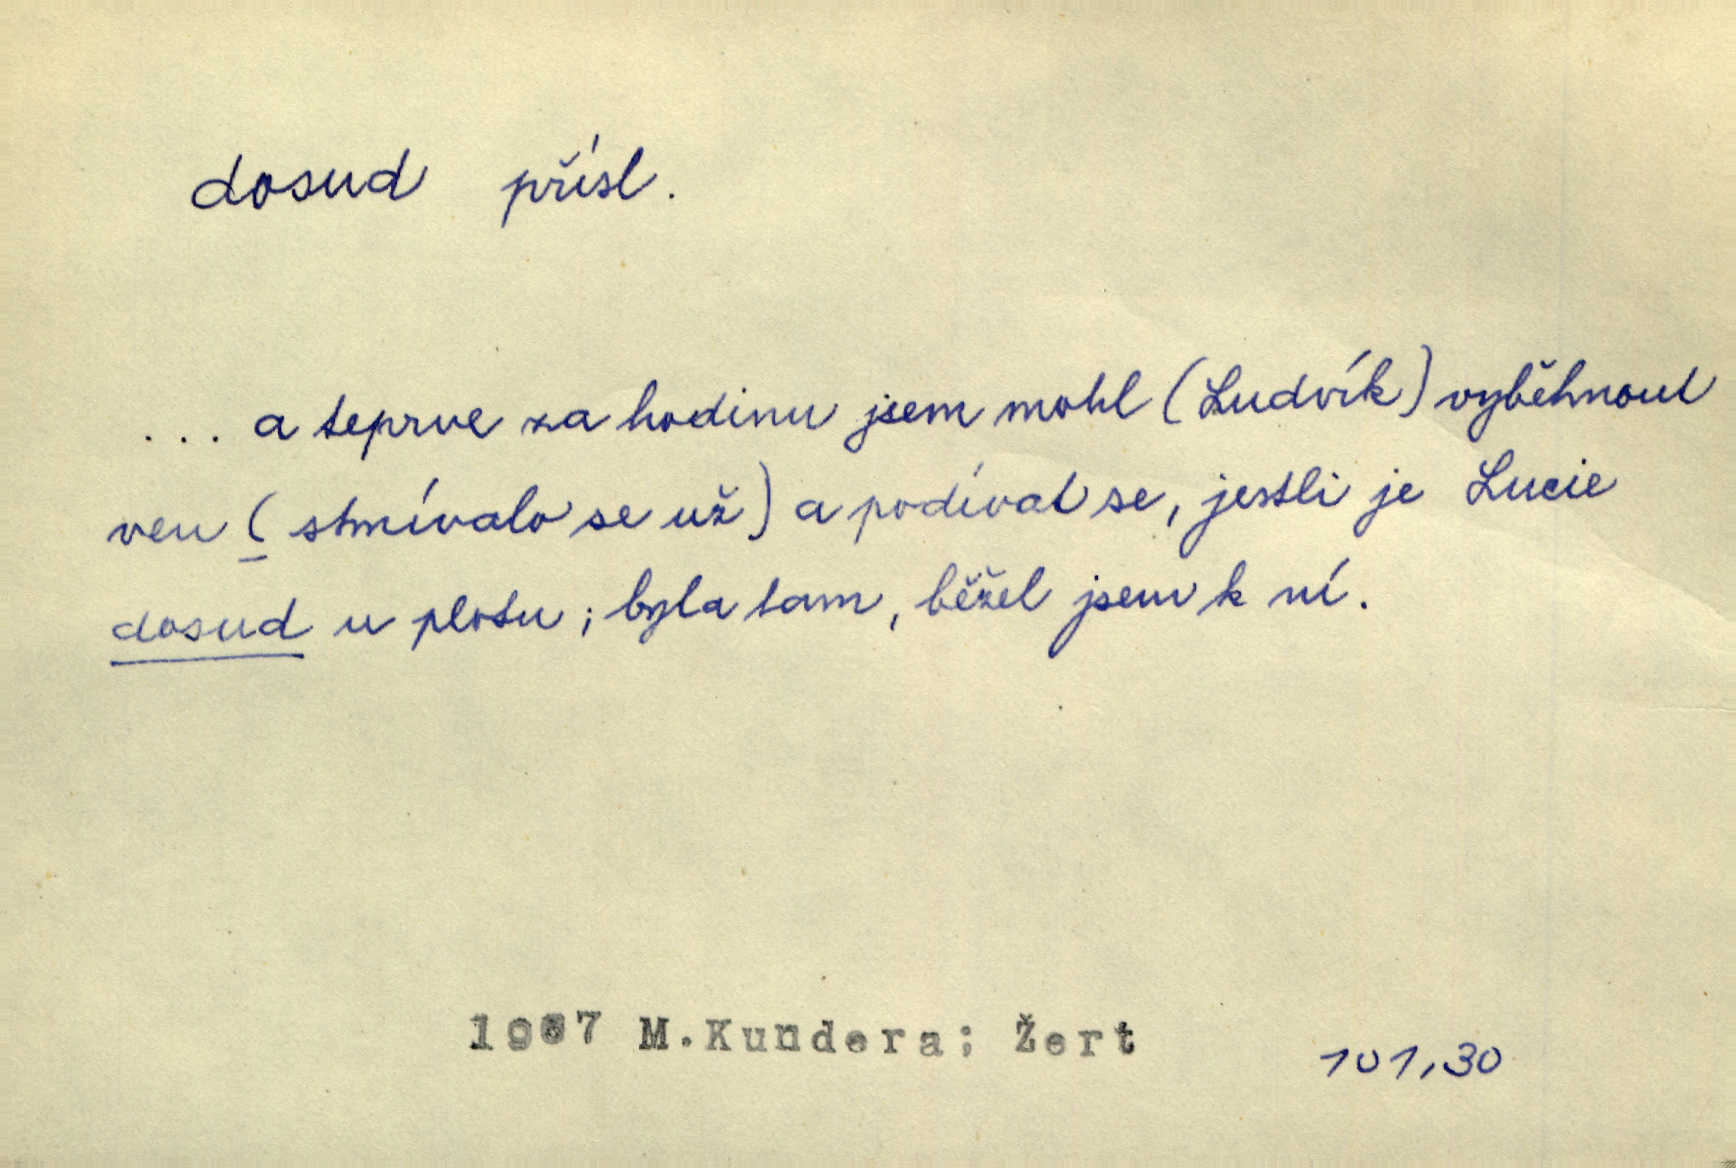 dosud přísl.
... a teprve za hodinu jsem mohl (Ludvík) vyběhnout
ven (stmívalo se už) a podívat se, jestli je Lucie
dosud u plotu; byla tam, běžel jsem k ní.
1967 M.Kundera; Žert
101,30